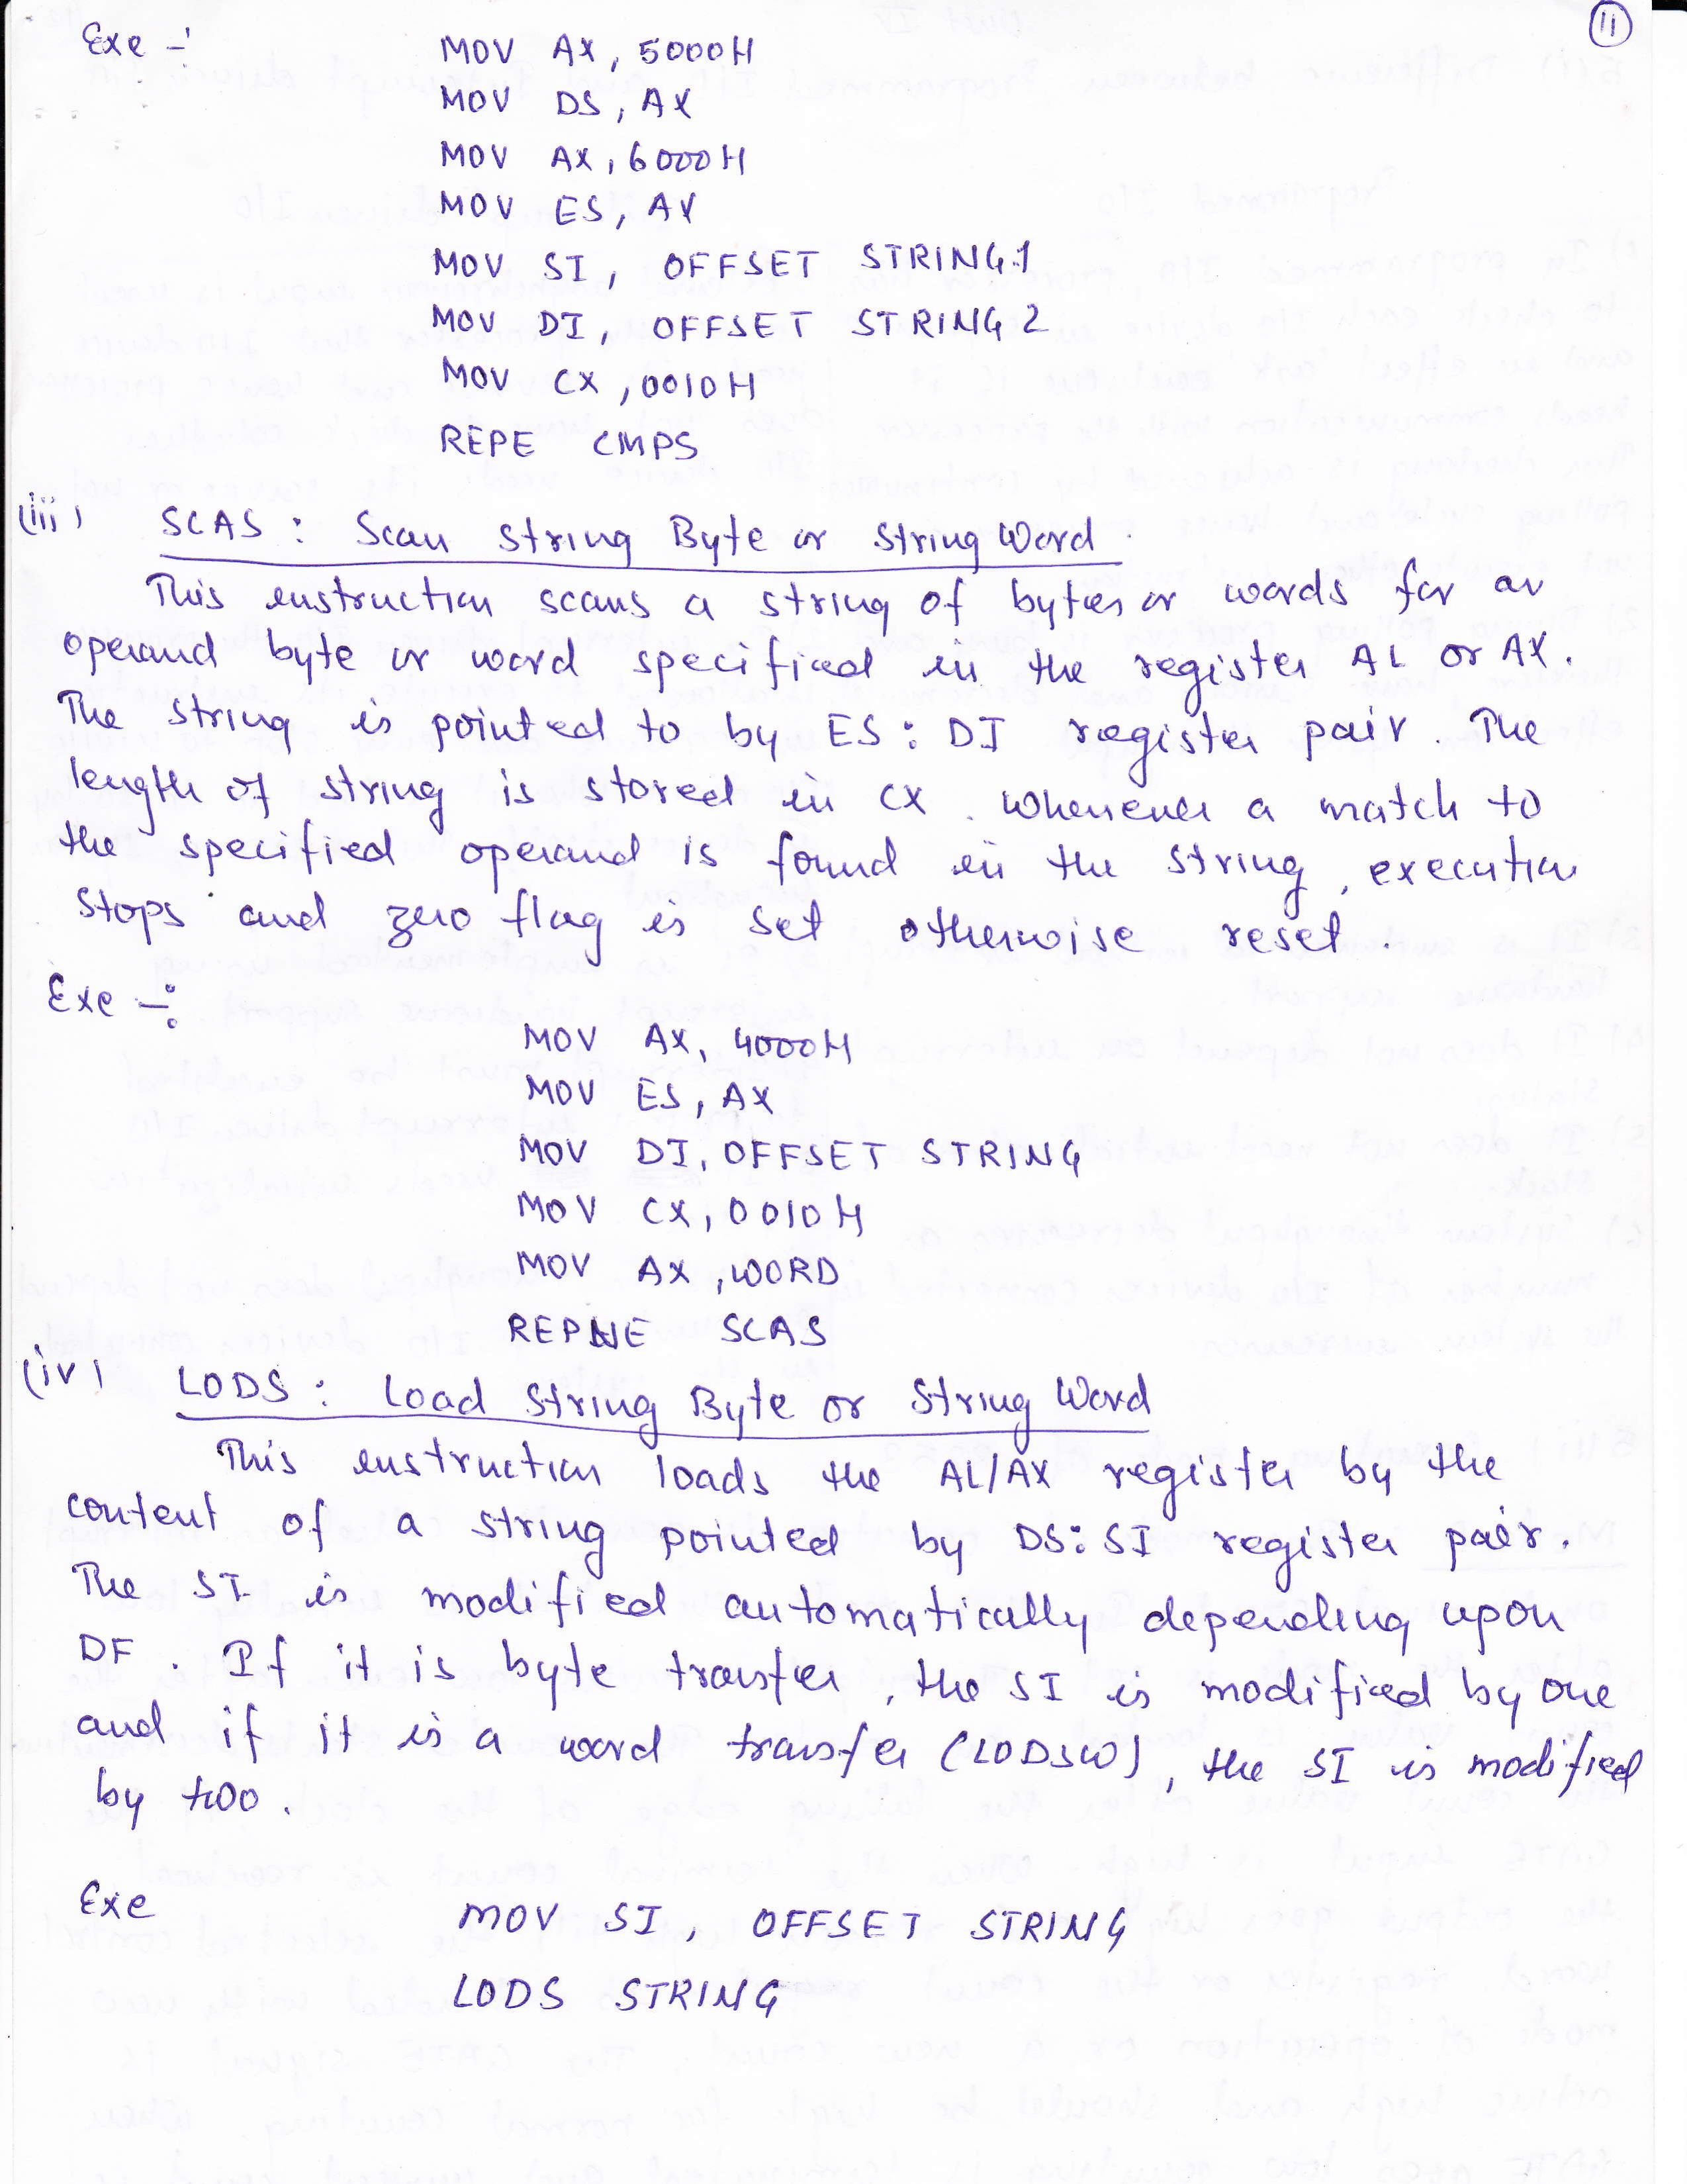 11
Exe -:
MOV AX, 5000H
MOV DS, AX
MOV AX, 6000H
MOV ES, AX
MOV SI, OFFSET STRING1
MOV DI, OFFSET STRING2
MOV CX, 0010H
REPE CMPS
(iii) SCAS : Scan String Byte or String Word.
This instruction scans a string of bytes or words for an
operand byte or word specified in the register AL or AX.
The string is pointed to by ES: DI register pair. The
length of string is stored in CX. Whenever a match to
the specified operand is found in the string, execution
stops and zero flag is set otherwise reset.
Exe -:
MOV AX, 4000H
MOV ES, AX
MOV DI, OFFSET STRING
MOV CX, 0010H
MOV AX, WORD
REPNE SCAS
(iv) LODS : Load String Byte or String Word
This instruction loads the AL/AX register by the
content of a string pointed by DS: SI register pair.
The SI is modified automatically depending upon
DF. If it is byte transfer, the SI is modified by one
and if it is a word transfer (LODSW), the SI is modified
by two.
Exe MOV SI, OFFSET STRING
LODS STRING